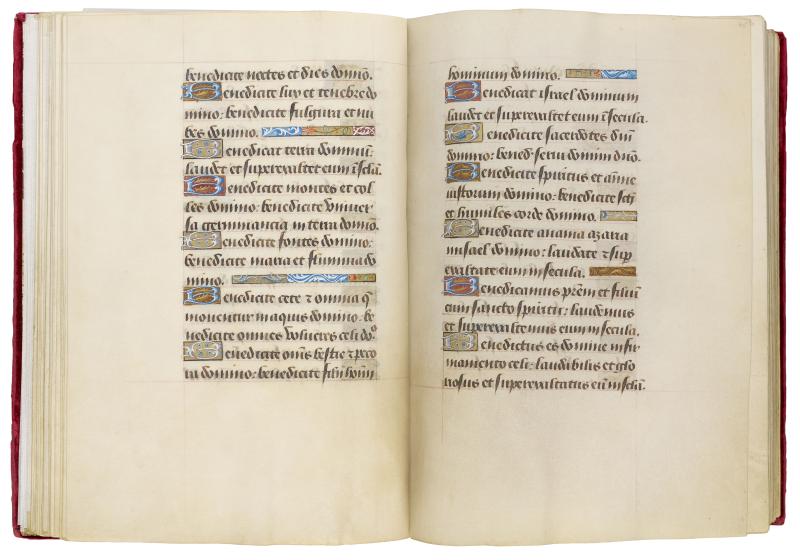 benedicite noctes et dies domino.
Benedicite lux et tenebre do
mino: benedicite fulgura et nu
bes domino.
Benedicat terra dominũ:
laudet et superexaltet eum ĩ sclã.
Benedicite montes et col
les domino: benedicite univer
sa germinancia in terra domĩo.
Benedicite fontes domino:
benedicite maria et flumina do
mino.
Benedicite cete ⁊ omnia q̃
moventur in aquis domino: be
nedicite omnes volucres celi do.º
Benedicite om̃s bestie ⁊ peco
ra domino: benedicite filii homĩ
hominum domino.
Benedicat israel dominum
laudet et superexaltet eum ĩ secula.
Benedicite sacerdotes dñi
domino: bened. servi domini dño.
Benedicite spiritus et anime
iustorum domino: benedicite scti
et humiles corde domino.
Benedicite anania azaria
misael domino: laudate ⁊ sup
exaltate eum in secula.
Benedicamus prẽm et filiũ
cum sancto spiritu: laudemus
et superexaltemus eum in secula.
Benedictus es domine in fir
mamento celi: laudibilis et glo
riosus et superexaltatus eũ in sclã.